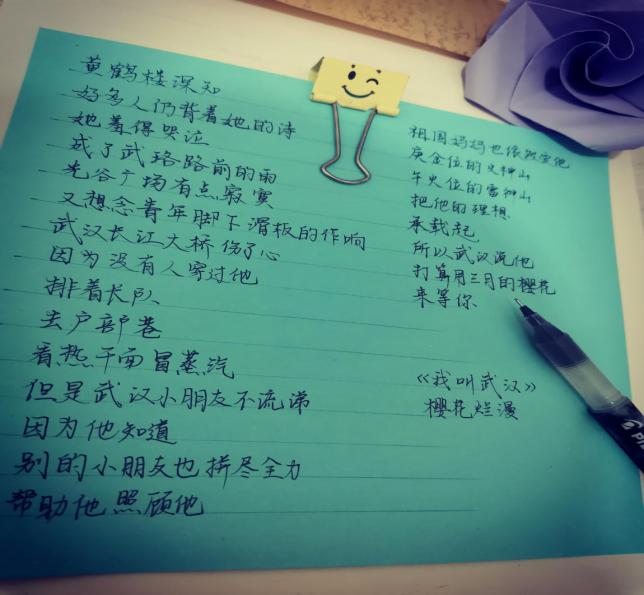 黄鹤楼深知
好多人仍背着她的诗
她羞得哭泣
成了武珞路前的雨
光谷广场有点寂寞
又想念青年脚下滑板的作响
武汉长江大桥伤了心
因为没有人穿过他
排着长队
去户部巷
看热干面冒蒸汽
但是武汉小朋友不流涕
因为他知道
别的小朋友也拼尽全力
帮助他照顾他
祖国妈妈也依然爱他
庚金位的火神山
午火位的雷神山
把他的理想
承载起
所以武汉说他
打算用三月的樱花
来等你
《我叫武汉》
樱花烂漫